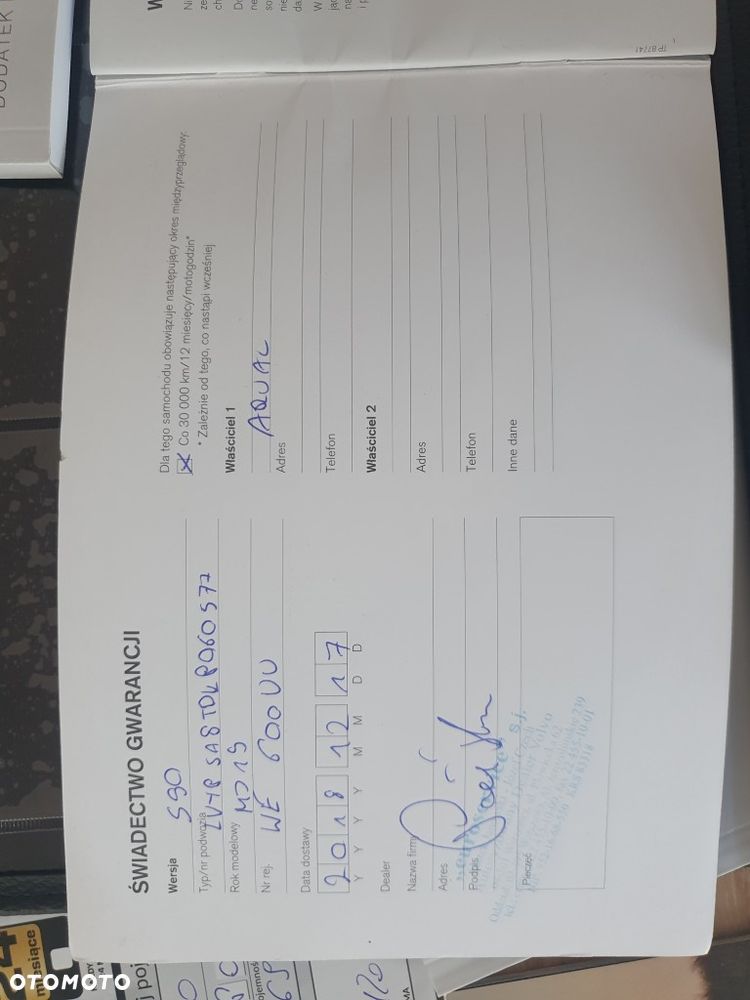 ŚWIADECTWO GWARANCJI
Wersja S90
Typ/nr podwozia
Rok modelowy MJ19
Nr rej. WE 600UU
Data dostawy
2018 12 17
Y Y Y Y M M D D
Dealer
Nazwa firmy
Adres
Podpis
Pieczęć
Dla tego samochodu obowiązuje następujący okres międzyprzeglądowy:
Co 30 000 km/12 miesięcy/motogodzin*
* Zależnie od tego, co nastąpi wcześniej
Właściciel 1
AQUAL
Adres
Telefon
Właściciel 2
Adres
Telefon
Inne dane
TP 87741
DODATEK
miesiące
OTOMOTO